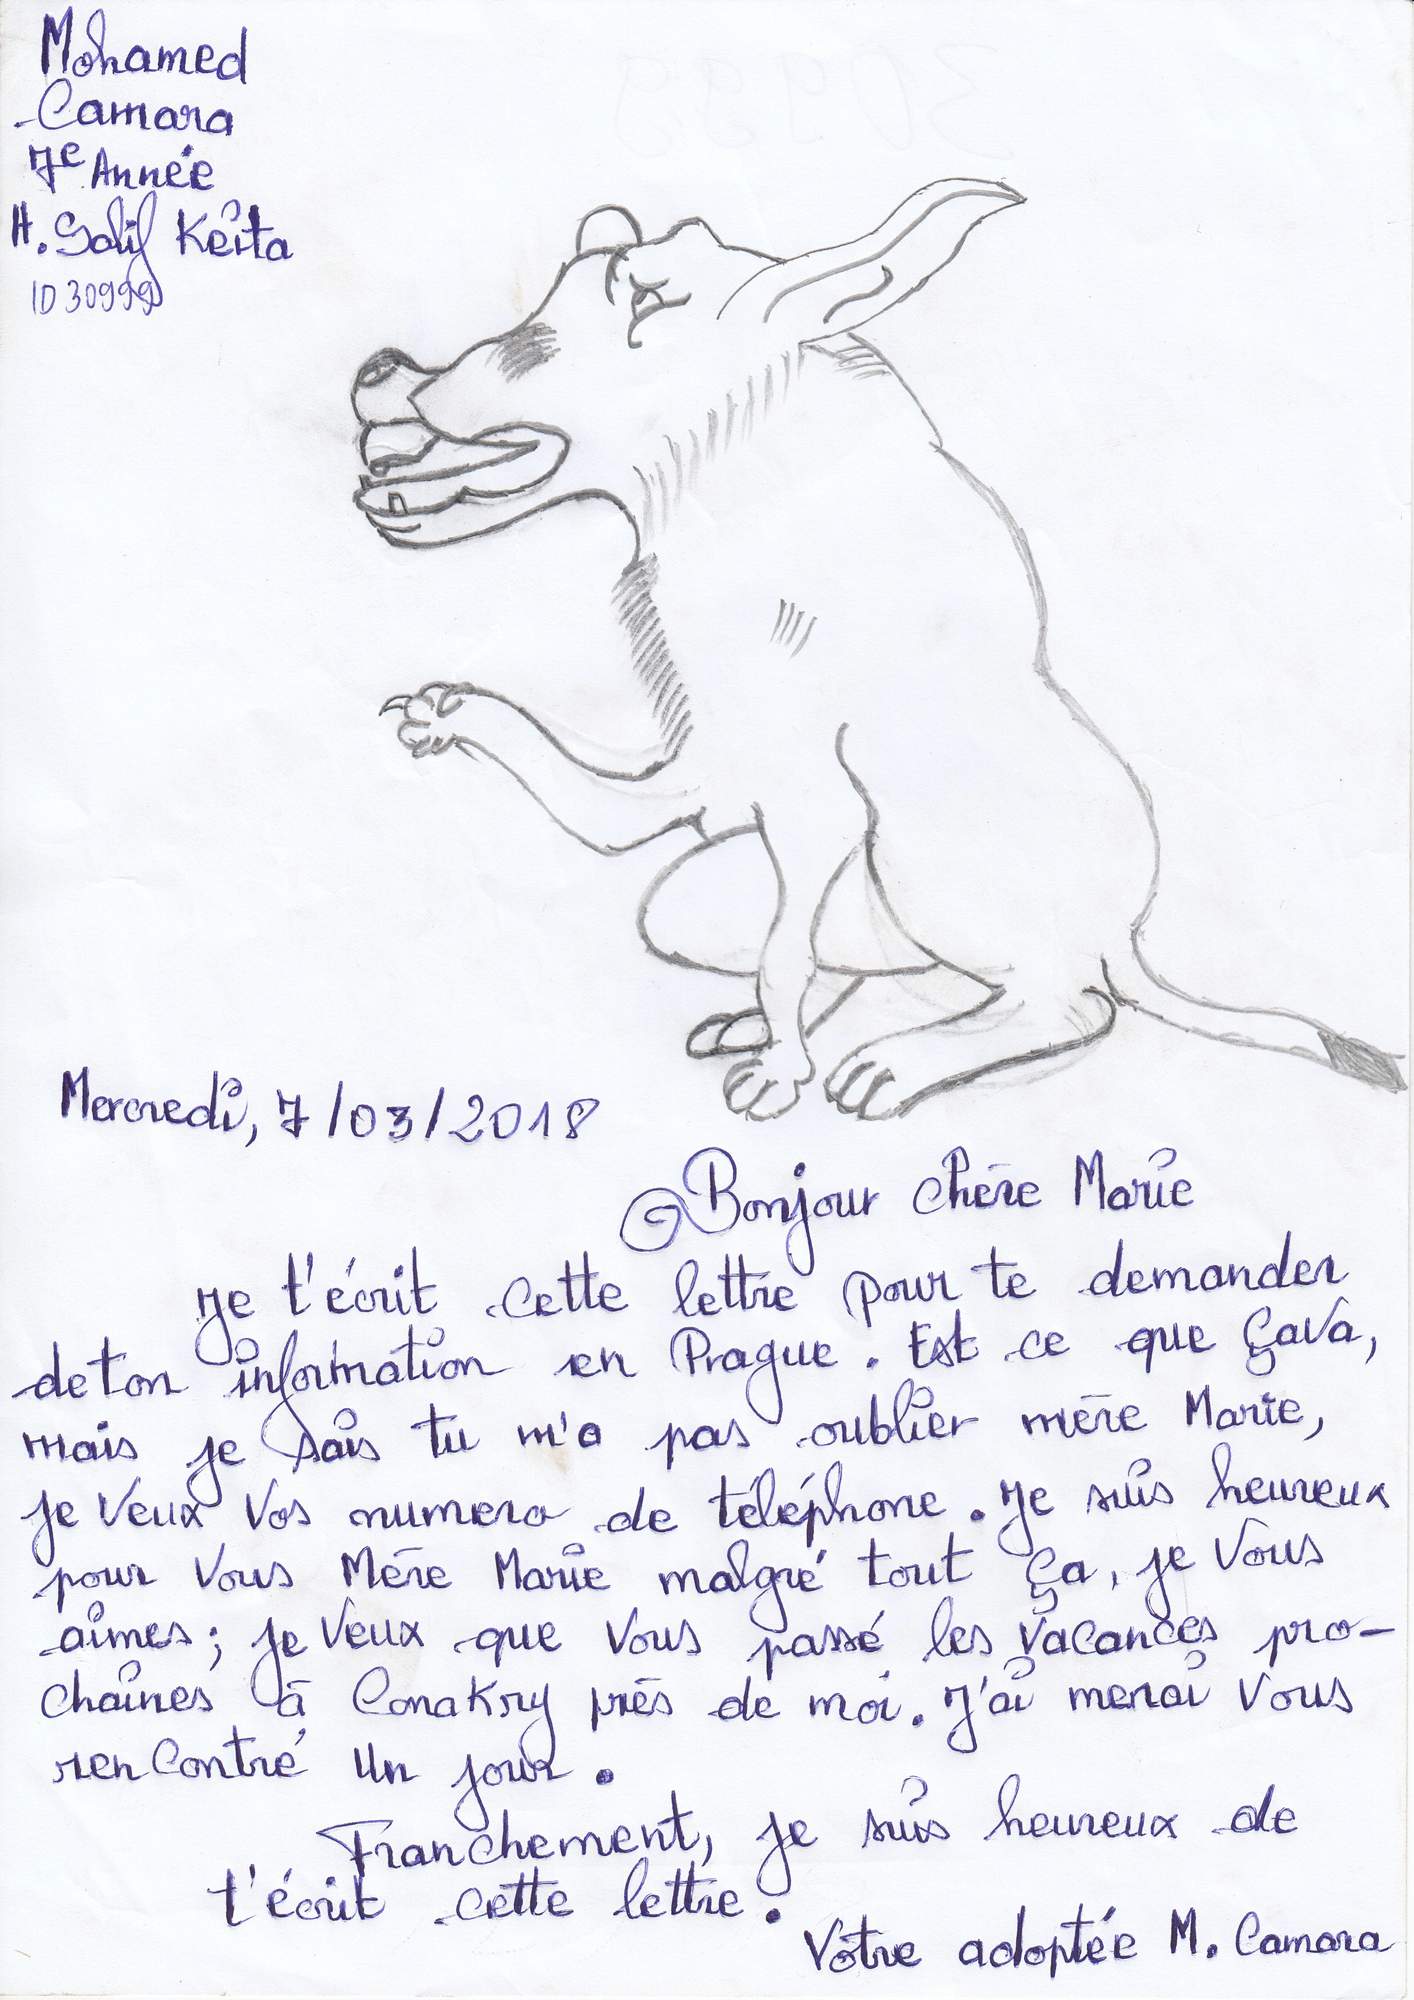 Mohamed
Camara
7e Année
H. Salif Keita
ID 30999
Mercredi, 7/03/2018
Bonjour chère Marie
Je t'écrit cette lettre pour te demander
de ton information en Prague. Est ce que çava,
mais je sais tu m'a pas oublier mère Marie,
je veux vos numero de téléphone. Je suis heureux
pour vous Mère Marie malgré tout ça, je vous
aimes; je veux que vous passé les vacances pro-
chaines à Conakry près de moi. J'ai merai vous
rencontré un jour.
Franchement, je suis heureux de
t'écrit cette lettre.
Votre adoptée M. Camara